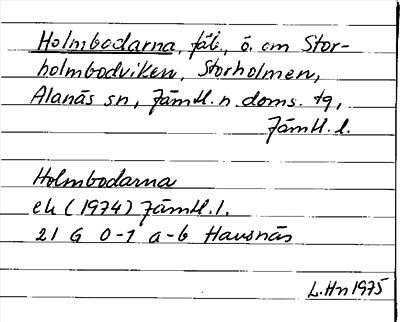 Holmbodarna, fäb., ö. om Stor-
holmbodviken, Storholmen,
Alanäs sn, Jämtl. n. doms. tg,
Jämtl. l.
Holmbodarna
ek (1974) Jämtl. l.
21 G 0-1 a-b Havsnäs
L. Hn 1975